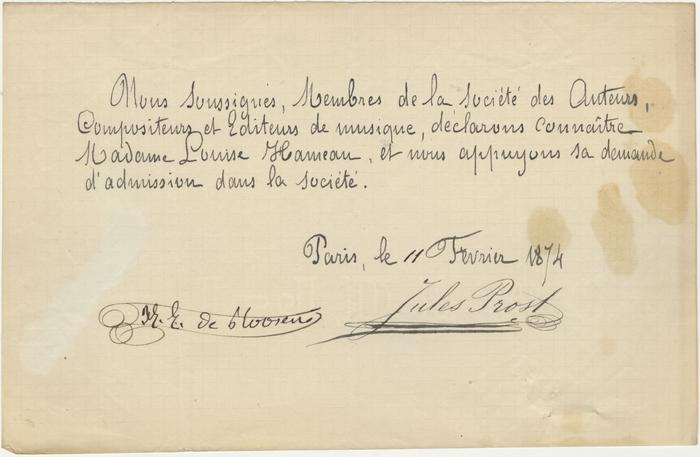 Nous soussignés, Membres de la Société des Auteurs,
Compositeurs et Editeurs de musique, déclarons connaître
Madame Louise Hameau, et nous appuyons sa demande
d'admission dans la société.
Paris, le 11 Février 1874
de
Jules Prost